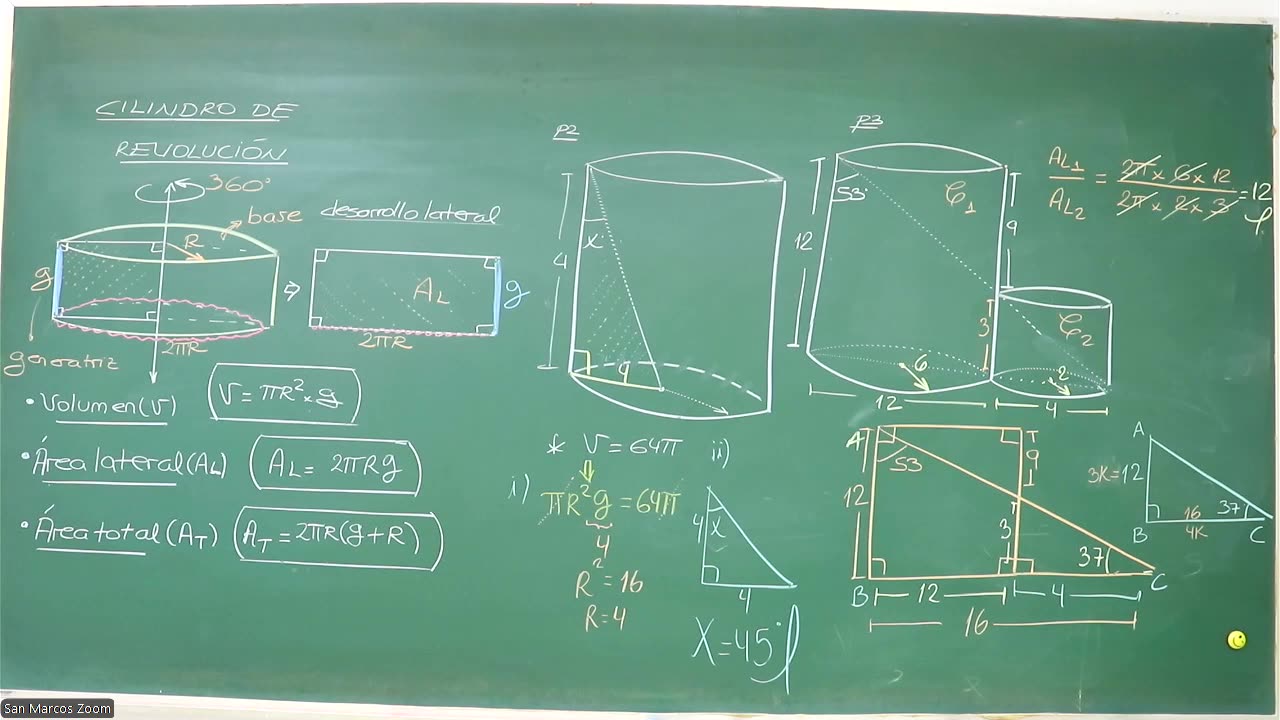 CILINDRO DE
REVOLUCIÓN
360°
base
R
g
2πR
generatriz
desarrollo lateral
AL
g
2πR
• Volumen(V)
V = πR²×g
• Área lateral(AL)
AL = 2πRg
• Área total(AT)
AT = 2πR(g+R)
P2
x
4
4
* V = 64π
i) πR²g = 64π
4
R² = 16
R = 4
ii)
4
x
4
X = 45°
P3
53°
12
C1
9
3
C2
6
2
12
4
AL1/AL2 = 2π×6×12/2π×2×3 = 12
A
53
9
12
3
37
B
12
4
C
16
A
3K=12
16
37
B
4K
C
San Marcos Zoom